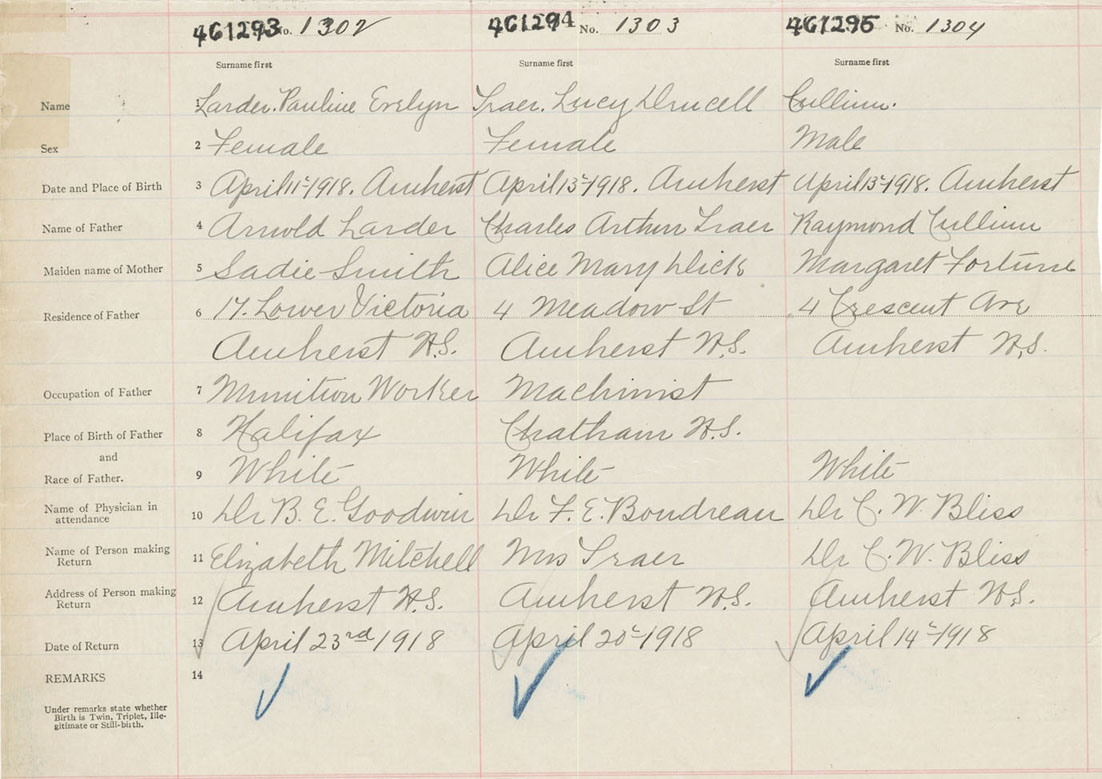 461293 No. 1302 461294 No. 1303 461295 No. 1304
Surname first Surname first Surname first
Name 1 Larder. Pauline Evelyn Traer. Lucy Drucell Cullium.
Sex 2 Female Female Male
Date and Place of Birth 3 April 11-1918. Amherst April 13-1918. Amherst April 13-1918. Amherst
Name of Father 4 Arnold Larder Charles Arthur Traer Raymond Cullium
Maiden name of Mother 5 Sadie Smith Alice Mary Dick Margaret Fortune
Residence of Father 6 17. Lower Victoria 4 Meadow St 4 Crescent Ave
Amherst N.S. Amherst N.S. Amherst N.S.
Occupation of Father 7 Munition Worker Machinist
Place of Birth of Father 8 Halifax Chatham N.S.
and
Race of Father. 9 White White White
Name of Physician in attendance 10 Dr B. E. Goodwin Dr F. E. Boudreau Dr C. W. Bliss
Name of Person making Return 11 Elizabeth Mitchell Mrs Traer Dr C. W. Bliss
Address of Person making Return 12 Amherst N.S. Amherst N.S. Amherst N.S.
Date of Return 13 April 23rd 1918 April 20-1918 April 14-1918
REMARKS 14
Under remarks state whether
Birth is Twin, Triplet, Ille-
gitimate or Still-birth.